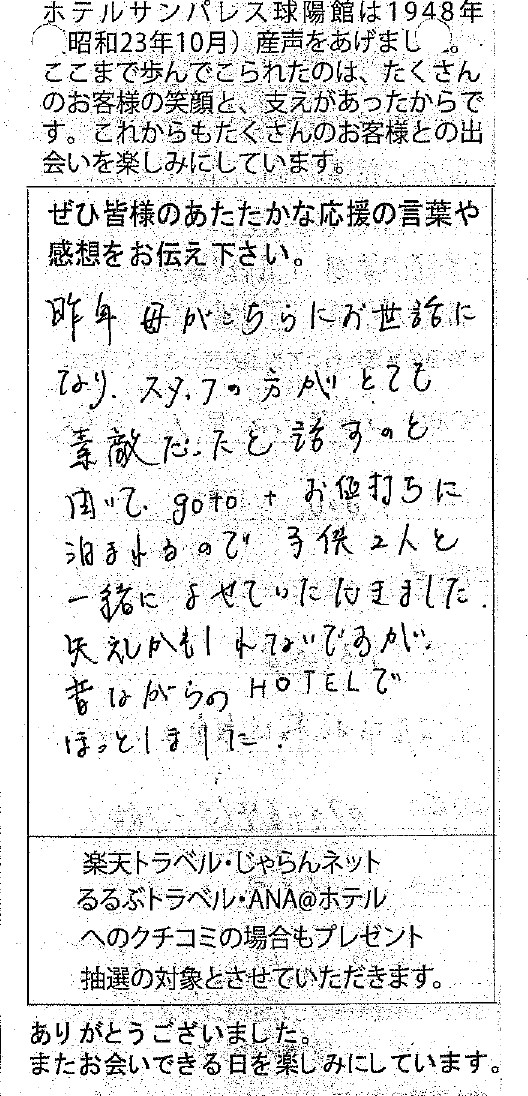 ホテルサンパレス球陽館は1948年
昭和23年10月）産声をあげまし 。
ここまで歩んでこられたのは、たくさん
のお客様の笑顔と、支えがあったからで
す。これからもたくさんのお客様との出
会いを楽しみにしています。
ぜひ皆様のあたたかな応援の言葉や
感想をお伝え下さい。
昨年 母がこちらにお世話に
なり、スタッフの方がとても
素敵だったと話すのと
聞いて、goto + お値打ちに
泊まれるので 子供2人と
一緒によせていただきました。
失礼かもしれないですが、
昔ながらのHOTELで
ほっとしました。
楽天トラベル・じゃらんネット
るるぶトラベル・ANA@ホテル
へのクチコミの場合もプレゼント
抽選の対象とさせていただきます。
ありがとうございました。
またお会いできる日を楽しみにしています。